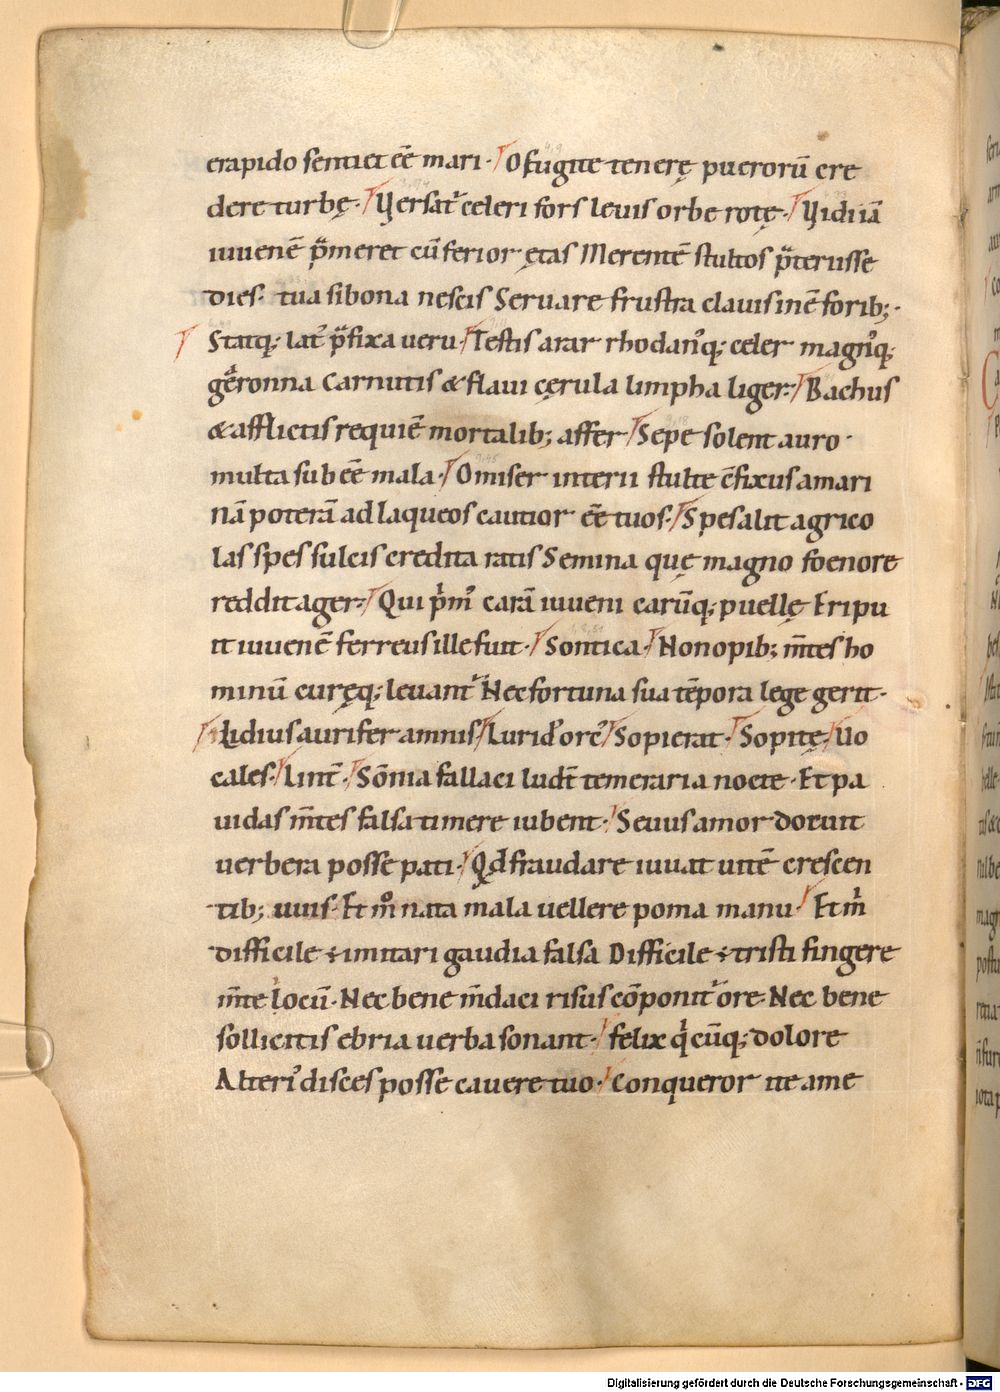 erapido sentiet eē mari· O fugite tenerę puerorū cre
dere turbę· Versat᷑ celeri fors leuis orbe rotę· Vidi iā
iuuenē p̄meret cū ferior ętas Merentē stultos p̄terisse
dies· tua si bona nescis Seruare frustra clauis inē forib;·
Statq; lat᷑ p̄fixa ueru· Testis arar rhodanꝰq; celer magnꝰq;
gēronna Carnutis & flaui cęrula limpha liger· Bachus
& afflictis requiē mortalib; affer Sepe solent auro·
multa sub eē mala· O miser interii stulte c̄fixus amari
nā poterā ad laqueos cautior eē tuos· Spes alit agrico
las spes sulcis credita ratis Semina quę magno foenore
reddit ager· Qui p̍mꝰ carā iuueni carūq; puellę Eripu
it iuuenē ferreus ille fuit· Sontica· Non opib; m̄tes ho
minū curęq; leuant᷑ Nec fortuna sua tēpora lege gerit·
Lidius aurifer amnis Luridꝰ orcꝰ Sopierat· Sopitę Uo
cales· Lint᷑· Sōnia fallaci ludt̄ temeraria nocte· Et pa
uidas m̄tes falsa timere iubent· Seuus amor docuit
uerbera posse pati· Qd̄ fraudare iuuat uitē crescen
tib; uuis· Et mꝰ nata mala uellere poma manu· Et m̍
difficile ÷ imitari gaudia falsa Difficile ÷ tristi fingere
m̄te locū· Nec bene m̄daci risus cōponit᷑ ore· Nec bene
sollicitis ebria uerba sonant· felix q̍cūq; dolore
Alteriꝰ disces posse cauere tuo· Conqueror ite ame
Digitalisierung gefördert durch die Deutsche Forschungsgemeinschaft - DFG